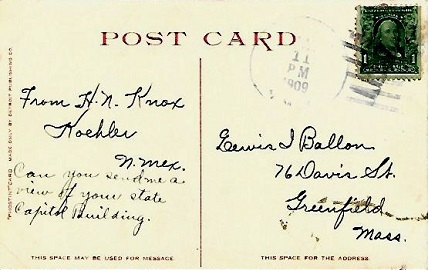 POST CARD
"PHOSTINT" CARD MADE ONLY BY DETROIT PUBLISHING CO.
11
PM
1909
1 1
From H. N. Knox
Koehler
N. Mex.
Can you send me a
view of your state
Capitol Building.
Lewis I Ballon
76 Davis St.
Greenfield
Mass.
THIS SPACE MAY BE USED FOR MESSAGE
THIS SPACE FOR THE ADDRESS.